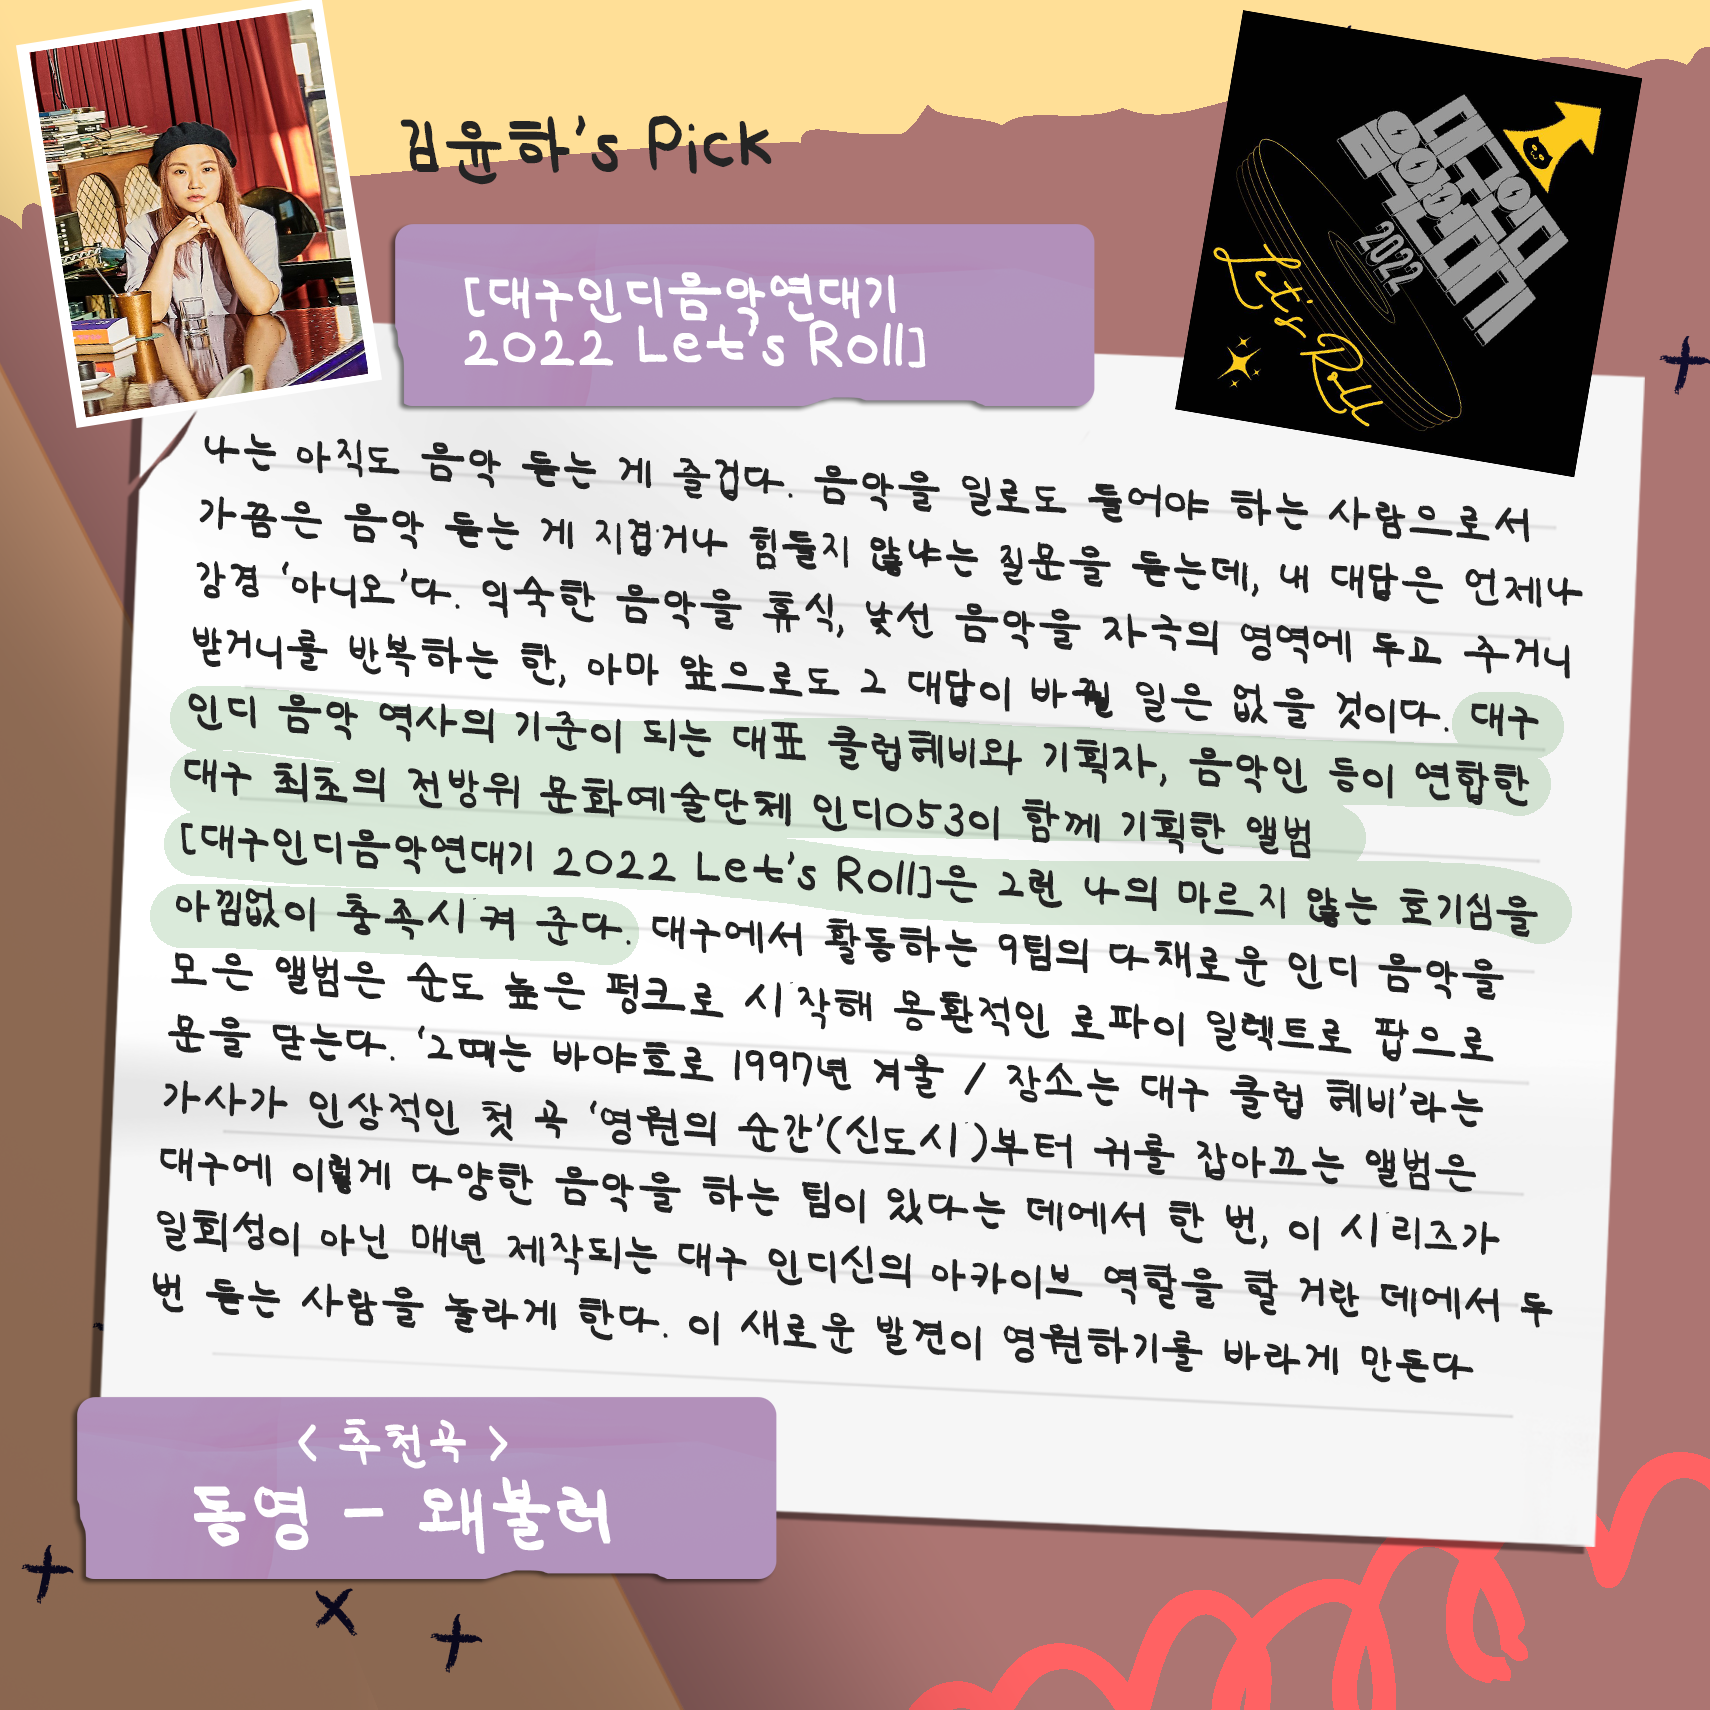 김윤하's Pick
[대구인디음악연대기
2022 Let's Roll]
대구인디
음악연대기
2022
Let's Roll
나는 아직도 음악 듣는 게 즐겁다. 음악을 일로도 들어야 하는 사람으로서
가끔은 음악 듣는 게 지겹거나 힘들지 않냐는 질문을 듣는데, 내 대답은 언제나
강경 '아니오'다. 익숙한 음악을 휴식, 낯선 음악을 자극의 영역에 두고 주거니
받거니를 반복하는 한, 아마 앞으로도 그 대답이 바뀔 일은 없을 것이다. 대구
인디 음악 역사의 기준이 되는 대표 클럽헤비와 기획자, 음악인 등이 연합한
대구 최초의 전방위 문화예술단체 인디053이 함께 기획한 앨범
[대구인디음악연대기 2022 Let's Roll]은 그런 나의 마르지 않는 호기심을
아낌없이 충족시켜 준다. 대구에서 활동하는 9팀의 다채로운 인디 음악을
모은 앨범은 순도 높은 펑크로 시작해 몽환적인 로파이 일렉트로 팝으로
문을 닫는다. '그때는 바야흐로 1997년 겨울 / 장소는 대구 클럽 헤비'라는
가사가 인상적인 첫 곡 '영원의 순간'(신도시)부터 귀를 잡아끄는 앨범은
대구에 이렇게 다양한 음악을 하는 팀이 있다는 데에서 한 번, 이 시리즈가
일회성이 아닌 매년 제작되는 대구 인디신의 아카이브 역할을 할 거란 데에서 두
번 듣는 사람을 놀라게 한다. 이 새로운 발견이 영원하기를 바라게 만든다
< 추천곡 >
동영 - 왜불러